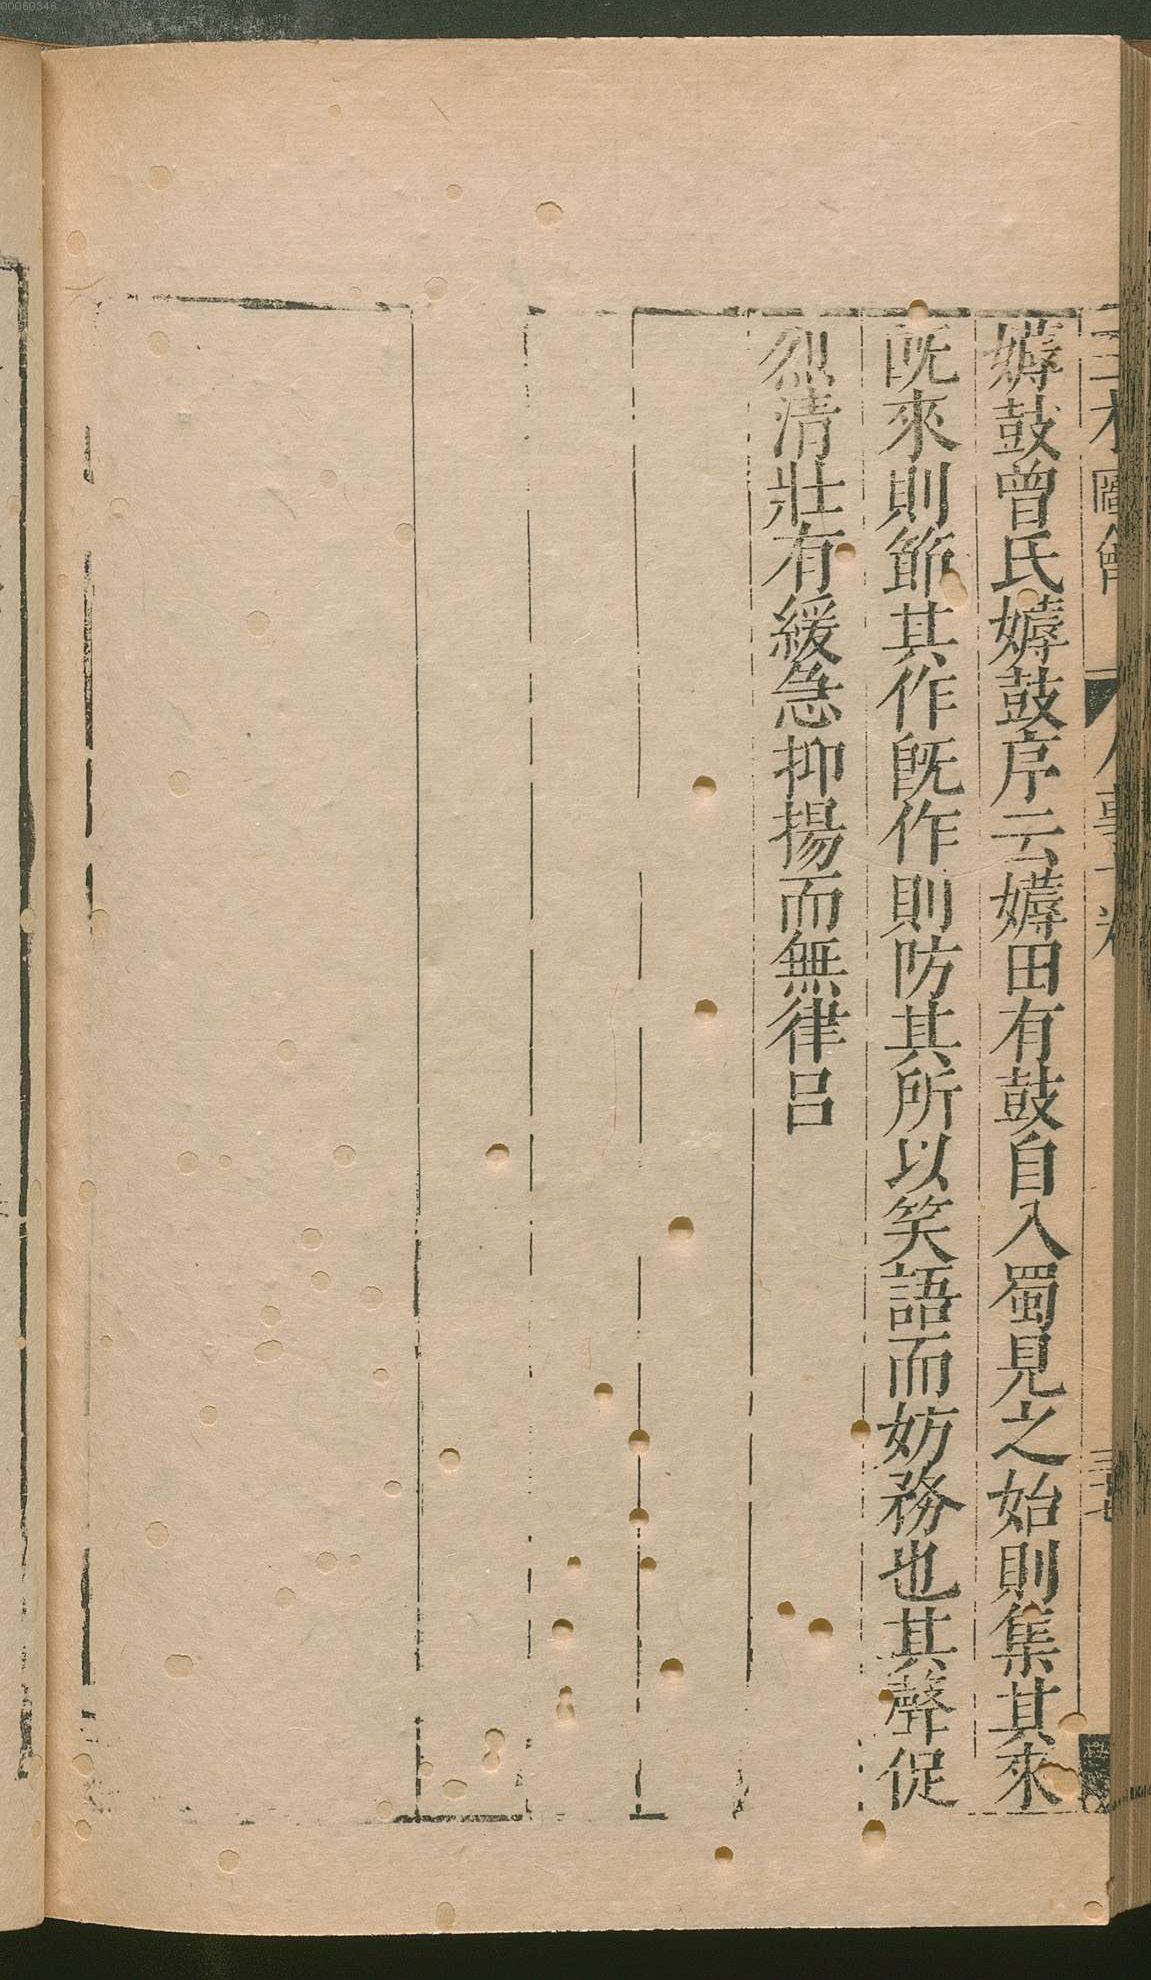 三才圖會 人事十卷 三七
薅鼓曾氏薅鼓序云薅田有鼓自入蜀見之始則集其來
既來則節其作既作則防其所以笑語而妨務也其聲促
烈清壯有緩急抑揚而無律呂
00060348